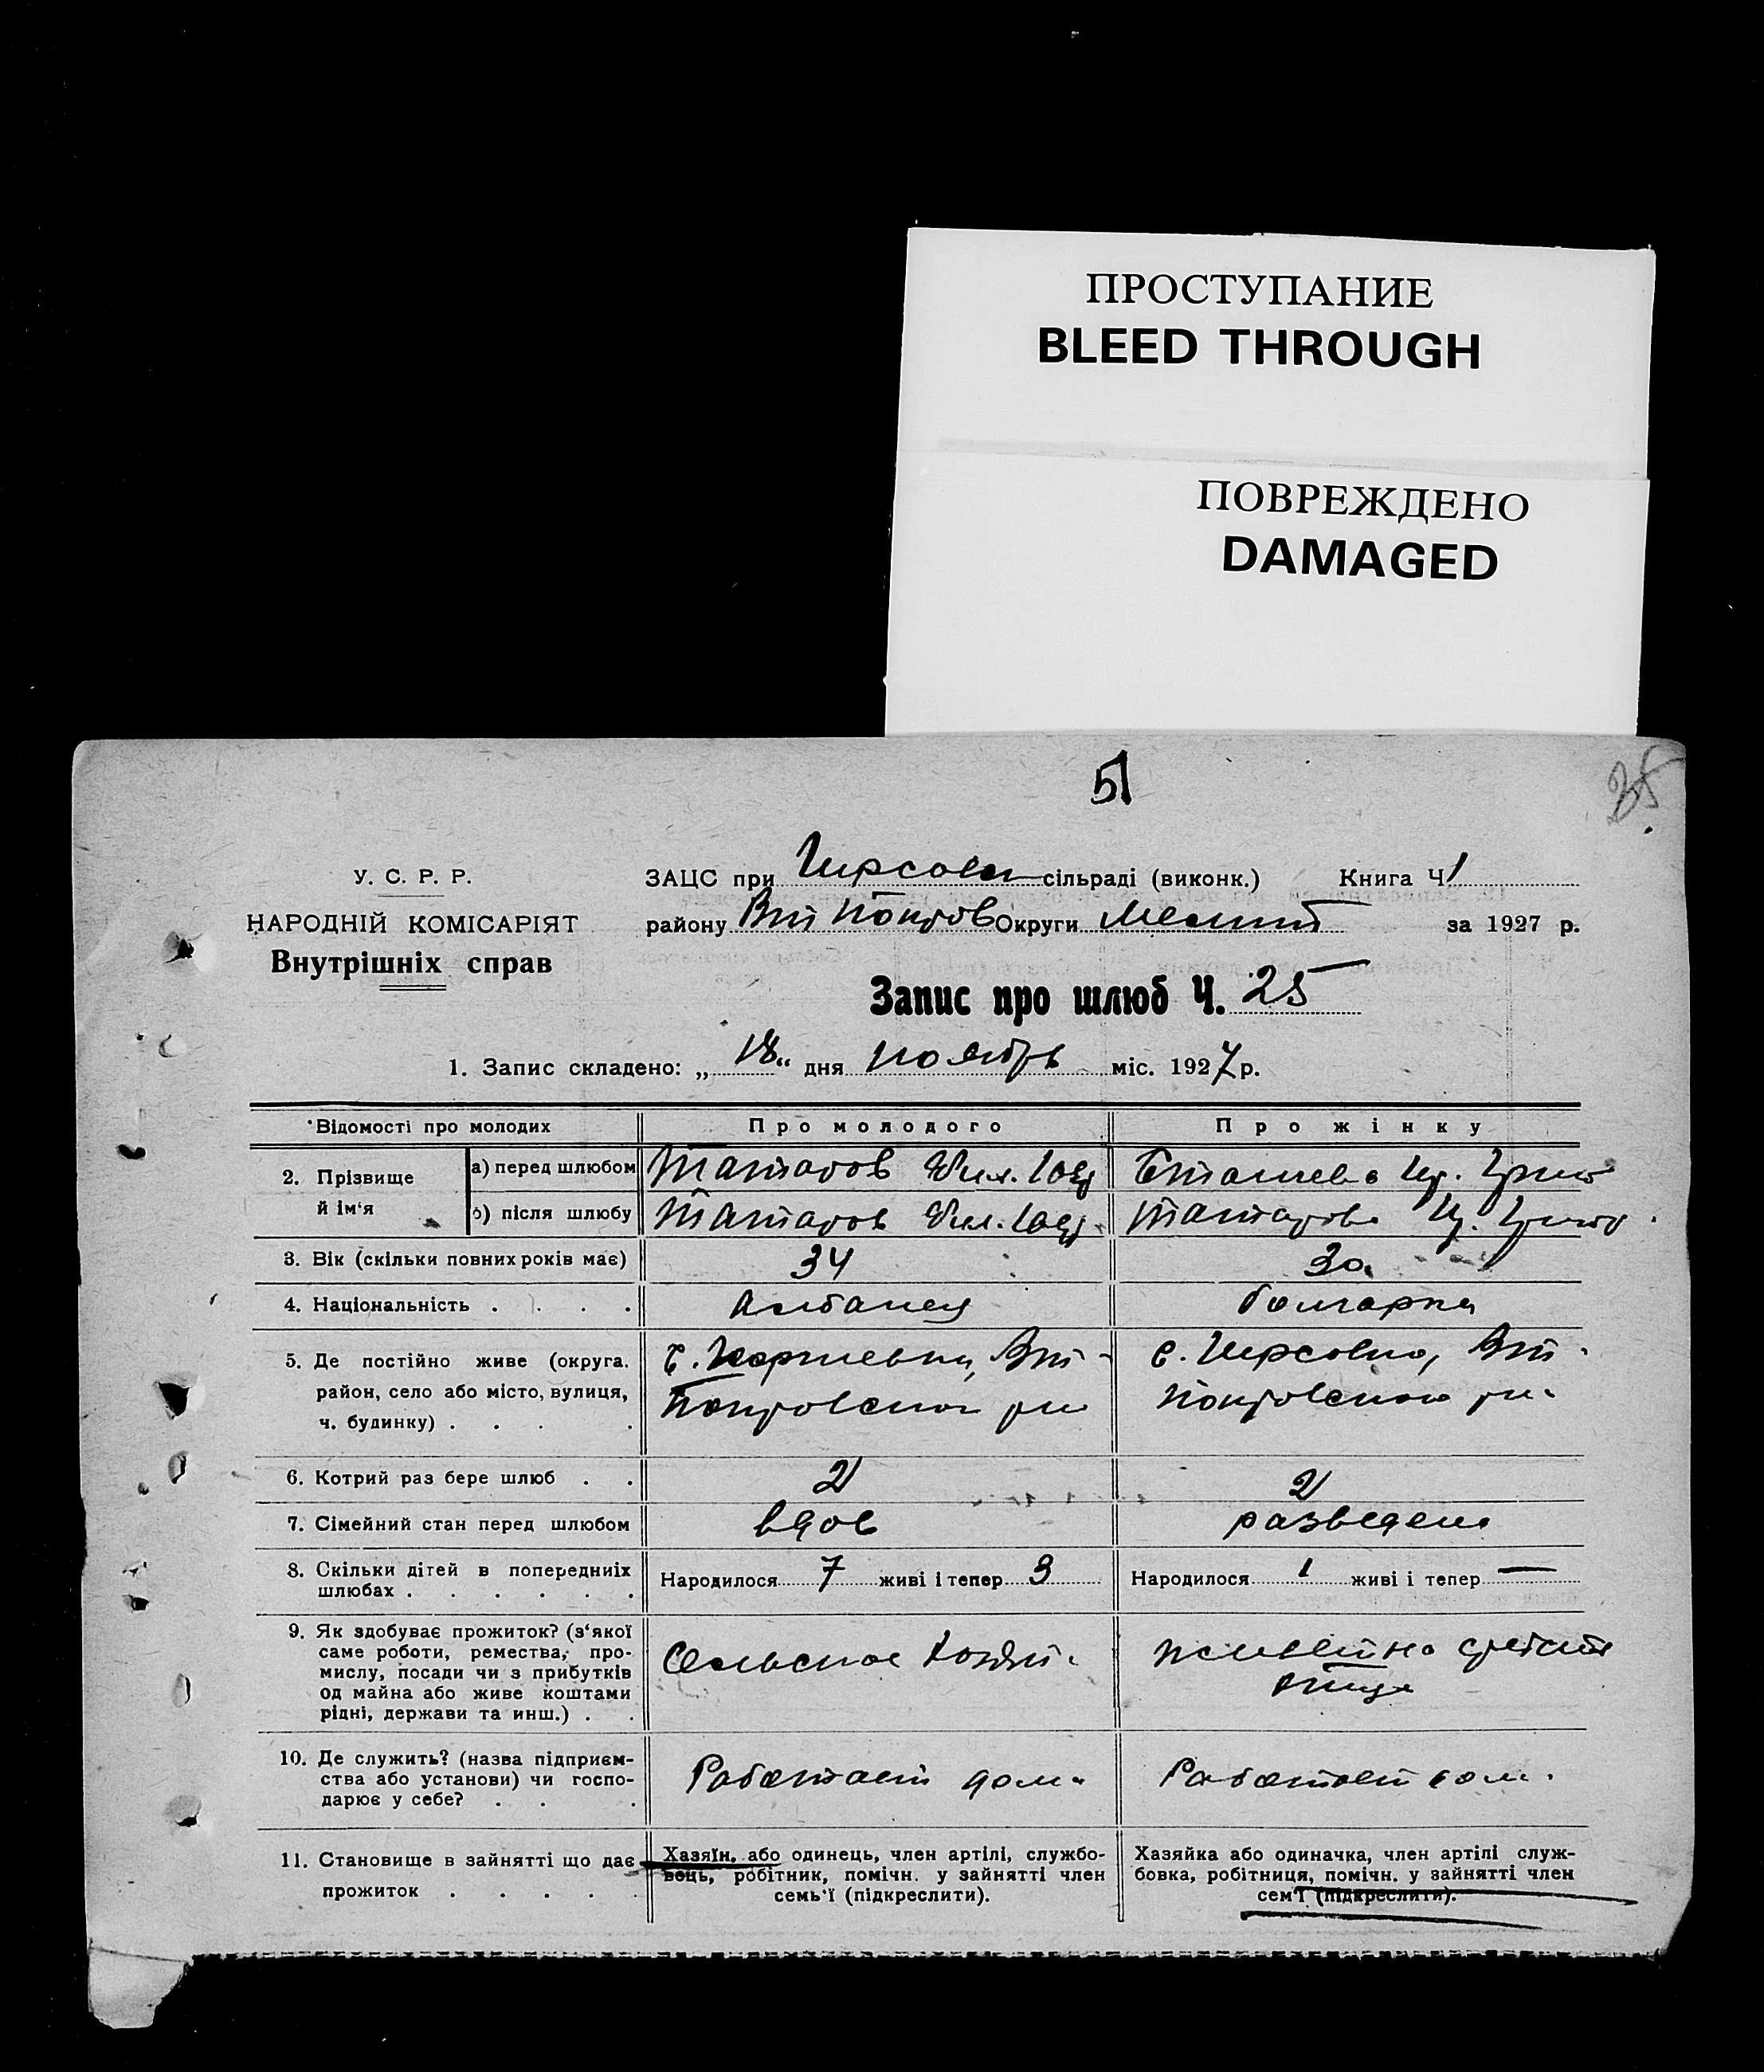 ПРОСТУПАНИЕ
BLEED THROUGH
ПОВРЕЖДЕНО
DAMAGED
51
25
У. С. Р. Р.
НАРОДНІЙ КОМІСАРІЯТ
Внутрішніх справ
ЗАЦС при Гирсовск сільраді (виконк.) Книга Ч 1
району Округи Мелит за 1927 р.
Запис про шлюб Ч. 25
1. Запис складено: „18“ дня ноября міс. 1927 р.
Відомості про молодих
Про молодого
Про жінку
2. Прізвище й ім'я
а) перед шлюбом Татаров Юрд
б) після шлюбу Татаров Юрд Татарова
3. Вік (скільки повних років має) 34 30
4. Національність . . . . Албанец болгарка
5. Де постійно живе (округа,
район, село або місто, вулиця,
ч. будинку) . . . .
с. Георгиевка,
Покровского р-на
с. Гирсовка,
Покровского р-на
6. Котрий раз бере шлюб . . 2 2
7. Сімейний стан перед шлюбом вдов разведена
8. Скільки дітей в попередніх
шлюбах . . . . . .
Народилося 7 живі і тепер 3
Народилося 1 живі і тепер —
9. Як здобуває прожиток? (з'якої
саме роботи, ремества, про-
мислу, посади чи з прибутків
од майна або живе коштами
рідні, держави та инш.) . .
Сельское хозяй.
живет на средства
отца
10. Де служить? (назва підприєм-
ства або установи) чи госпо-
дарює у себе? . . .
Работает дома
Работает дома
11. Становище в зайнятті що дає
прожиток . . . . .
Хазяїн, або одинець, член артілі, службо-
вець, робітник, помічн. у зайнятті член
семь'ї (підкреслити).
Хазяйка або одиначка, член артілі служ-
бовка, робітниця, помічн. у зайнятті член
сем'ї (підкреслити).